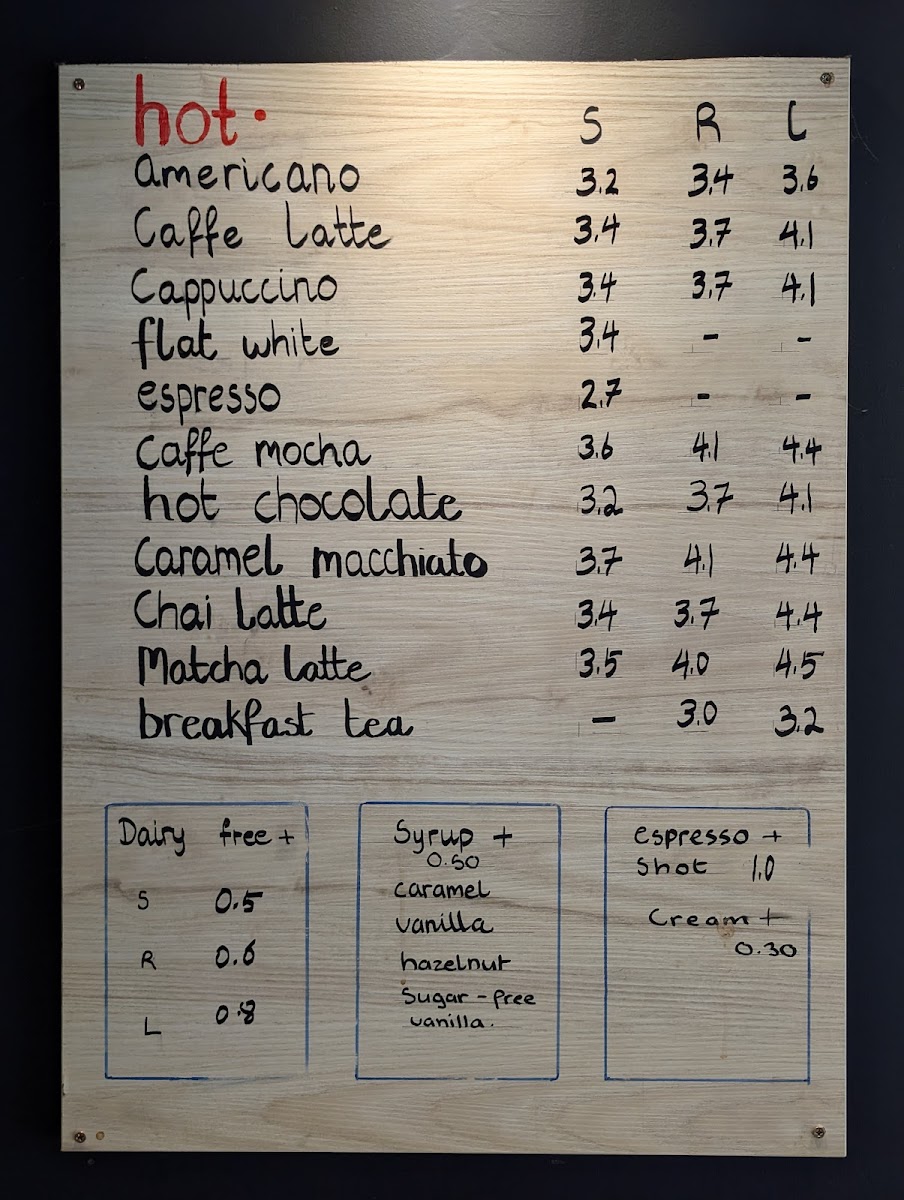 hot. S R L
americano 3.2 3.4 3.6
Caffe Latte 3.4 3.7 4.1
Cappuccino 3.4 3.7 4.1
flat white 3.4 - -
espresso 2.7 - -
Caffe mocha 3.6 4.1 4.4
hot chocolate 3.2 3.7 4.1
Caramel macchiato 3.7 4.1 4.4
Chai Latte 3.4 3.7 4.4
Matcha Latte 3.5 4.0 4.5
breakfast tea - 3.0 3.2
Dairy free +
S 0.5
R 0.6
L 0.8
Syrup +
0.50
caramel
vanilla
hazelnut
Sugar-free
vanilla.
espresso +
Shot 1.0
Cream +
0.30